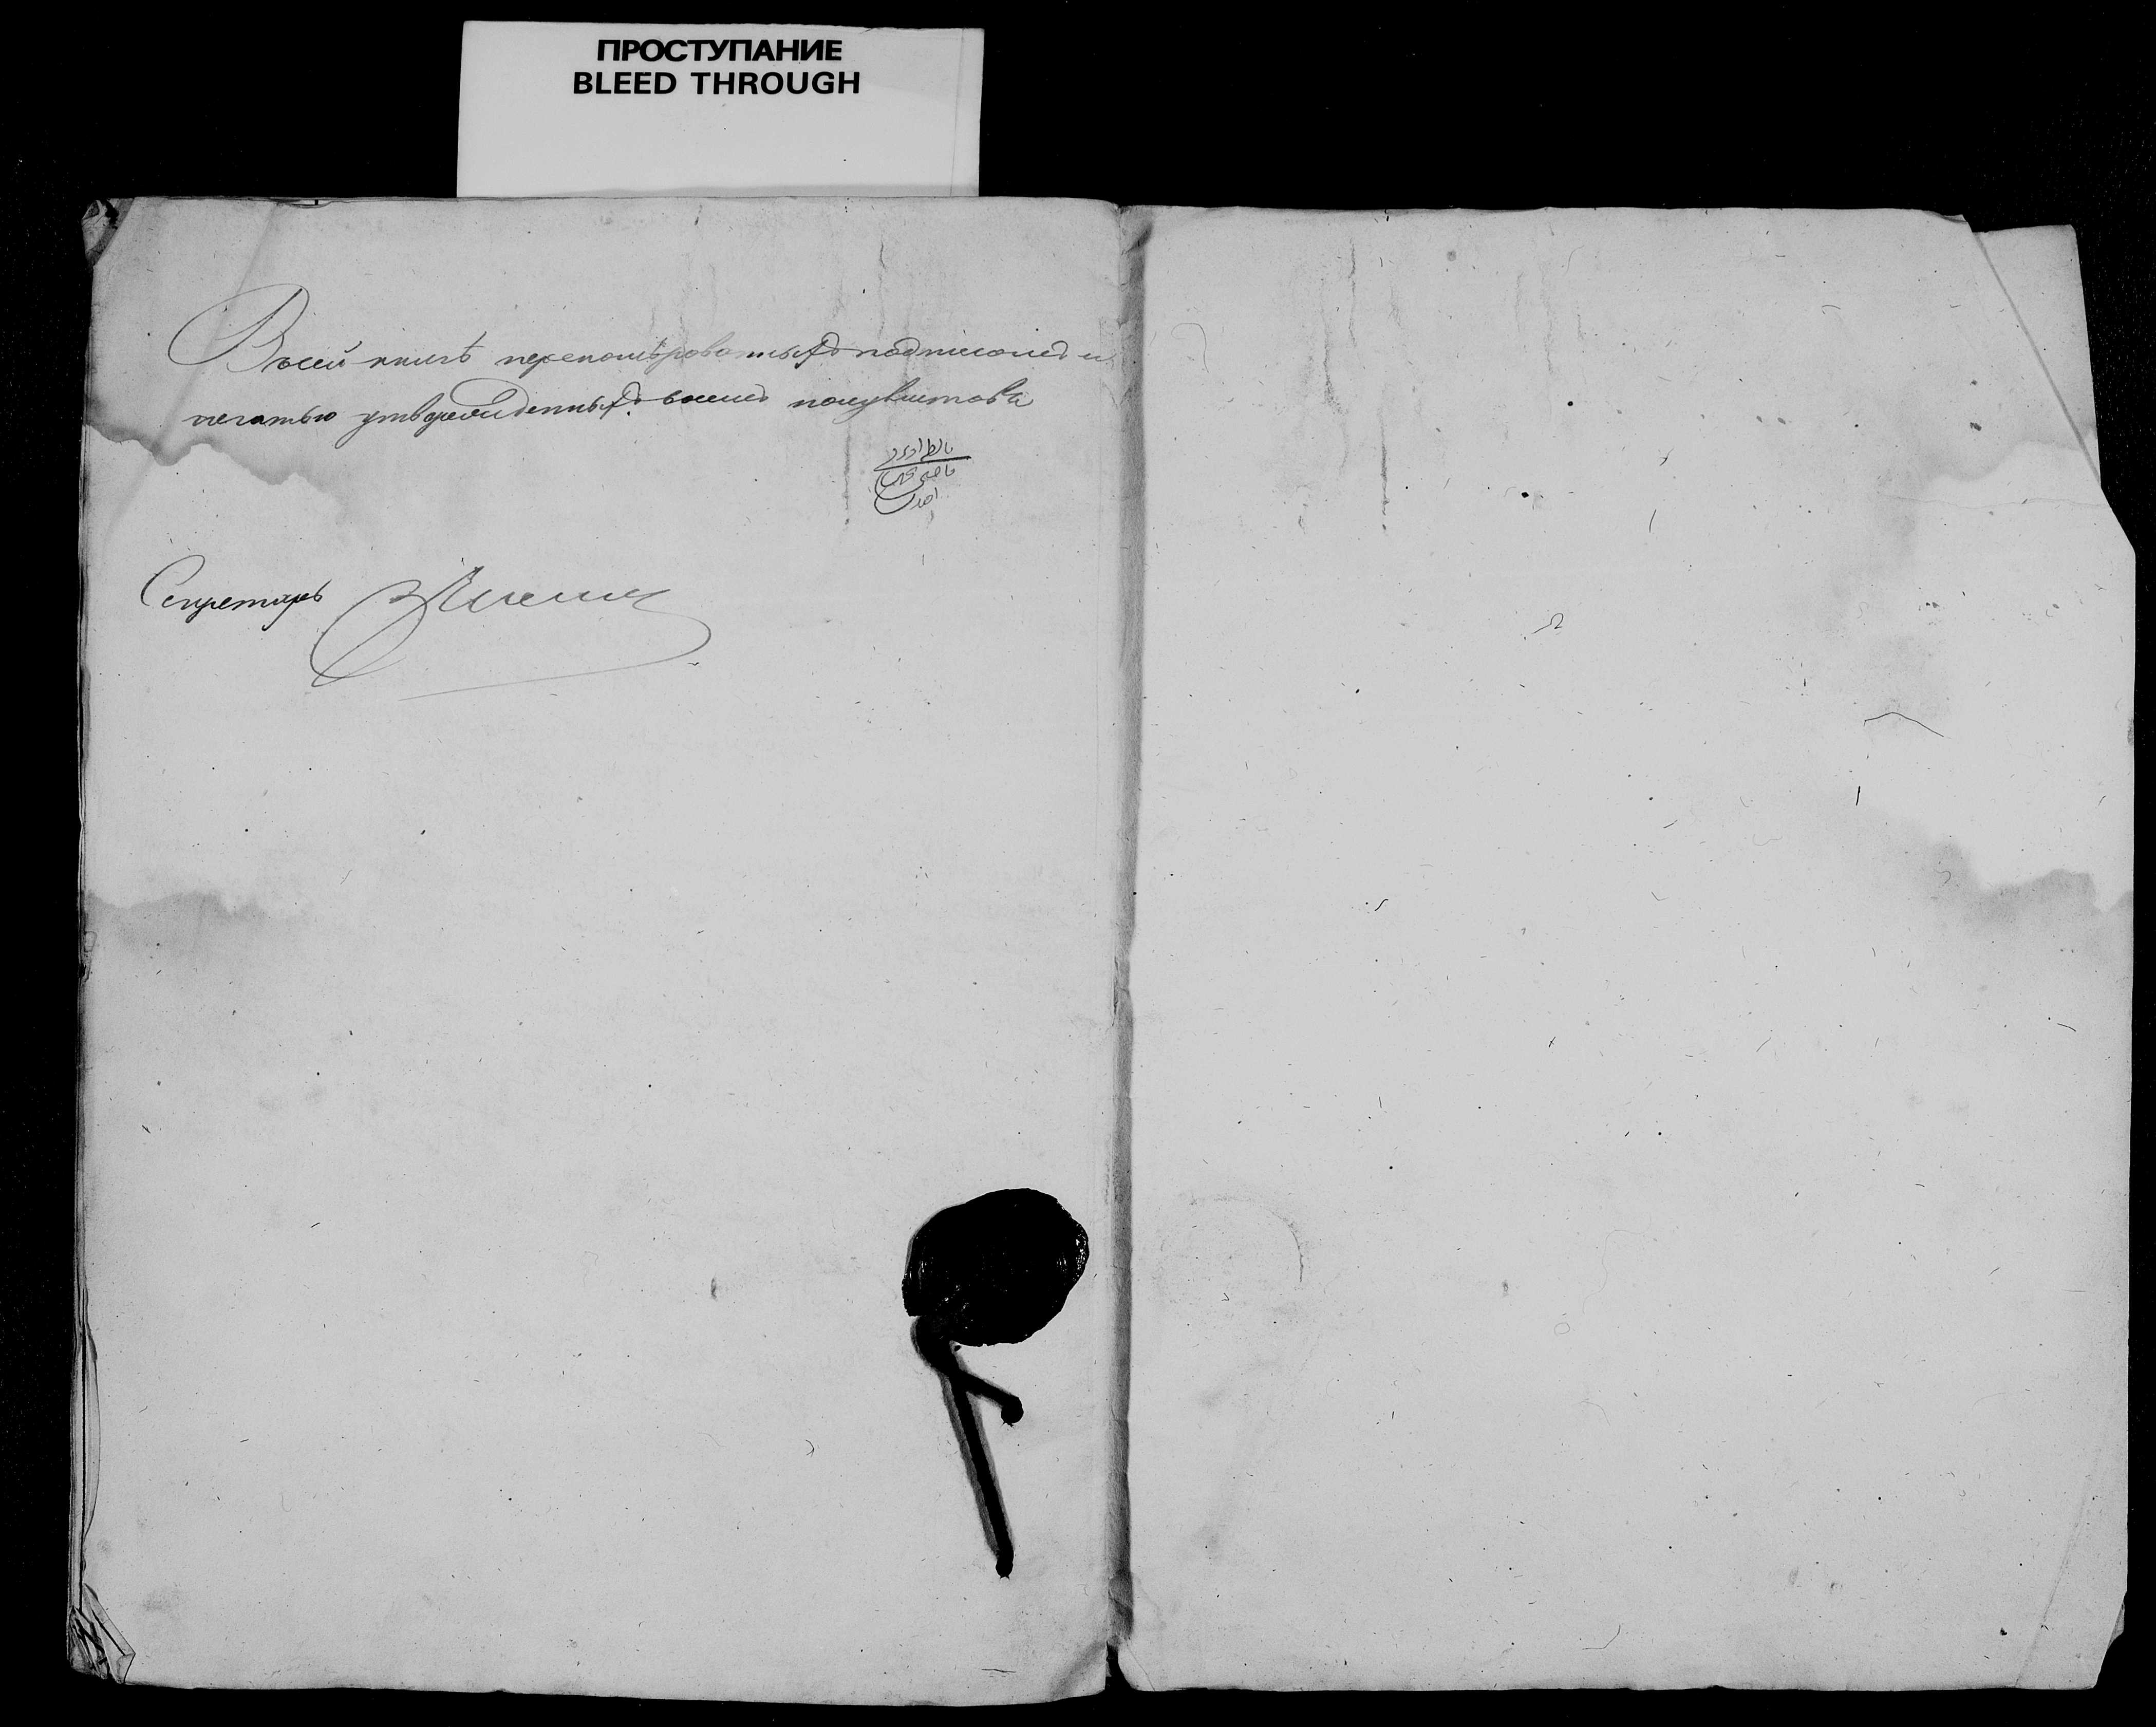 ПРОСТУПАНИЕ
BLEED THROUGH
Въ сей книгѣ переномерованныхъ подписомъ и
печатью утвержденныхъ восемь полулистовъ
Секретарь